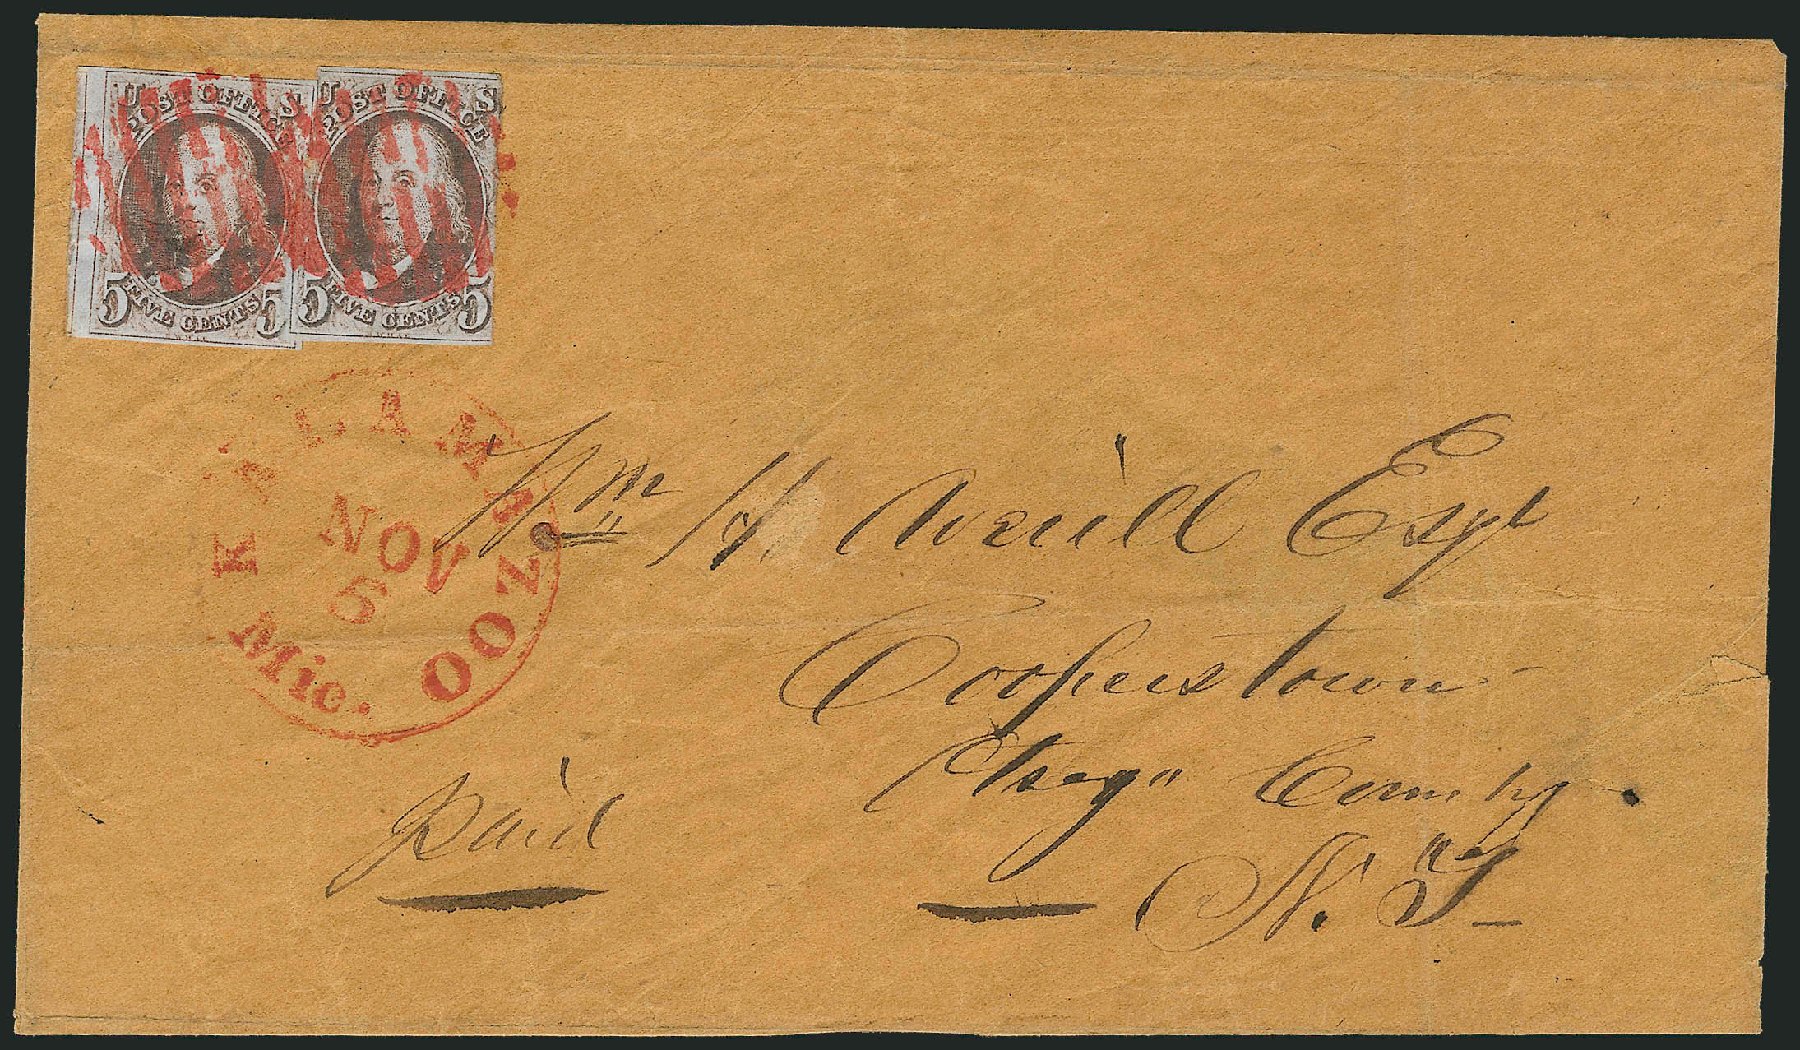 U S U S
POST OFFICE POST OFFICE
5 FIVE CENTS 5 5 FIVE CENTS 5
KALAMAZOO
Mic.
NOV
5
Wm H. Averill Esqr
Cooperstown
Otsego County
N. Y
Paid